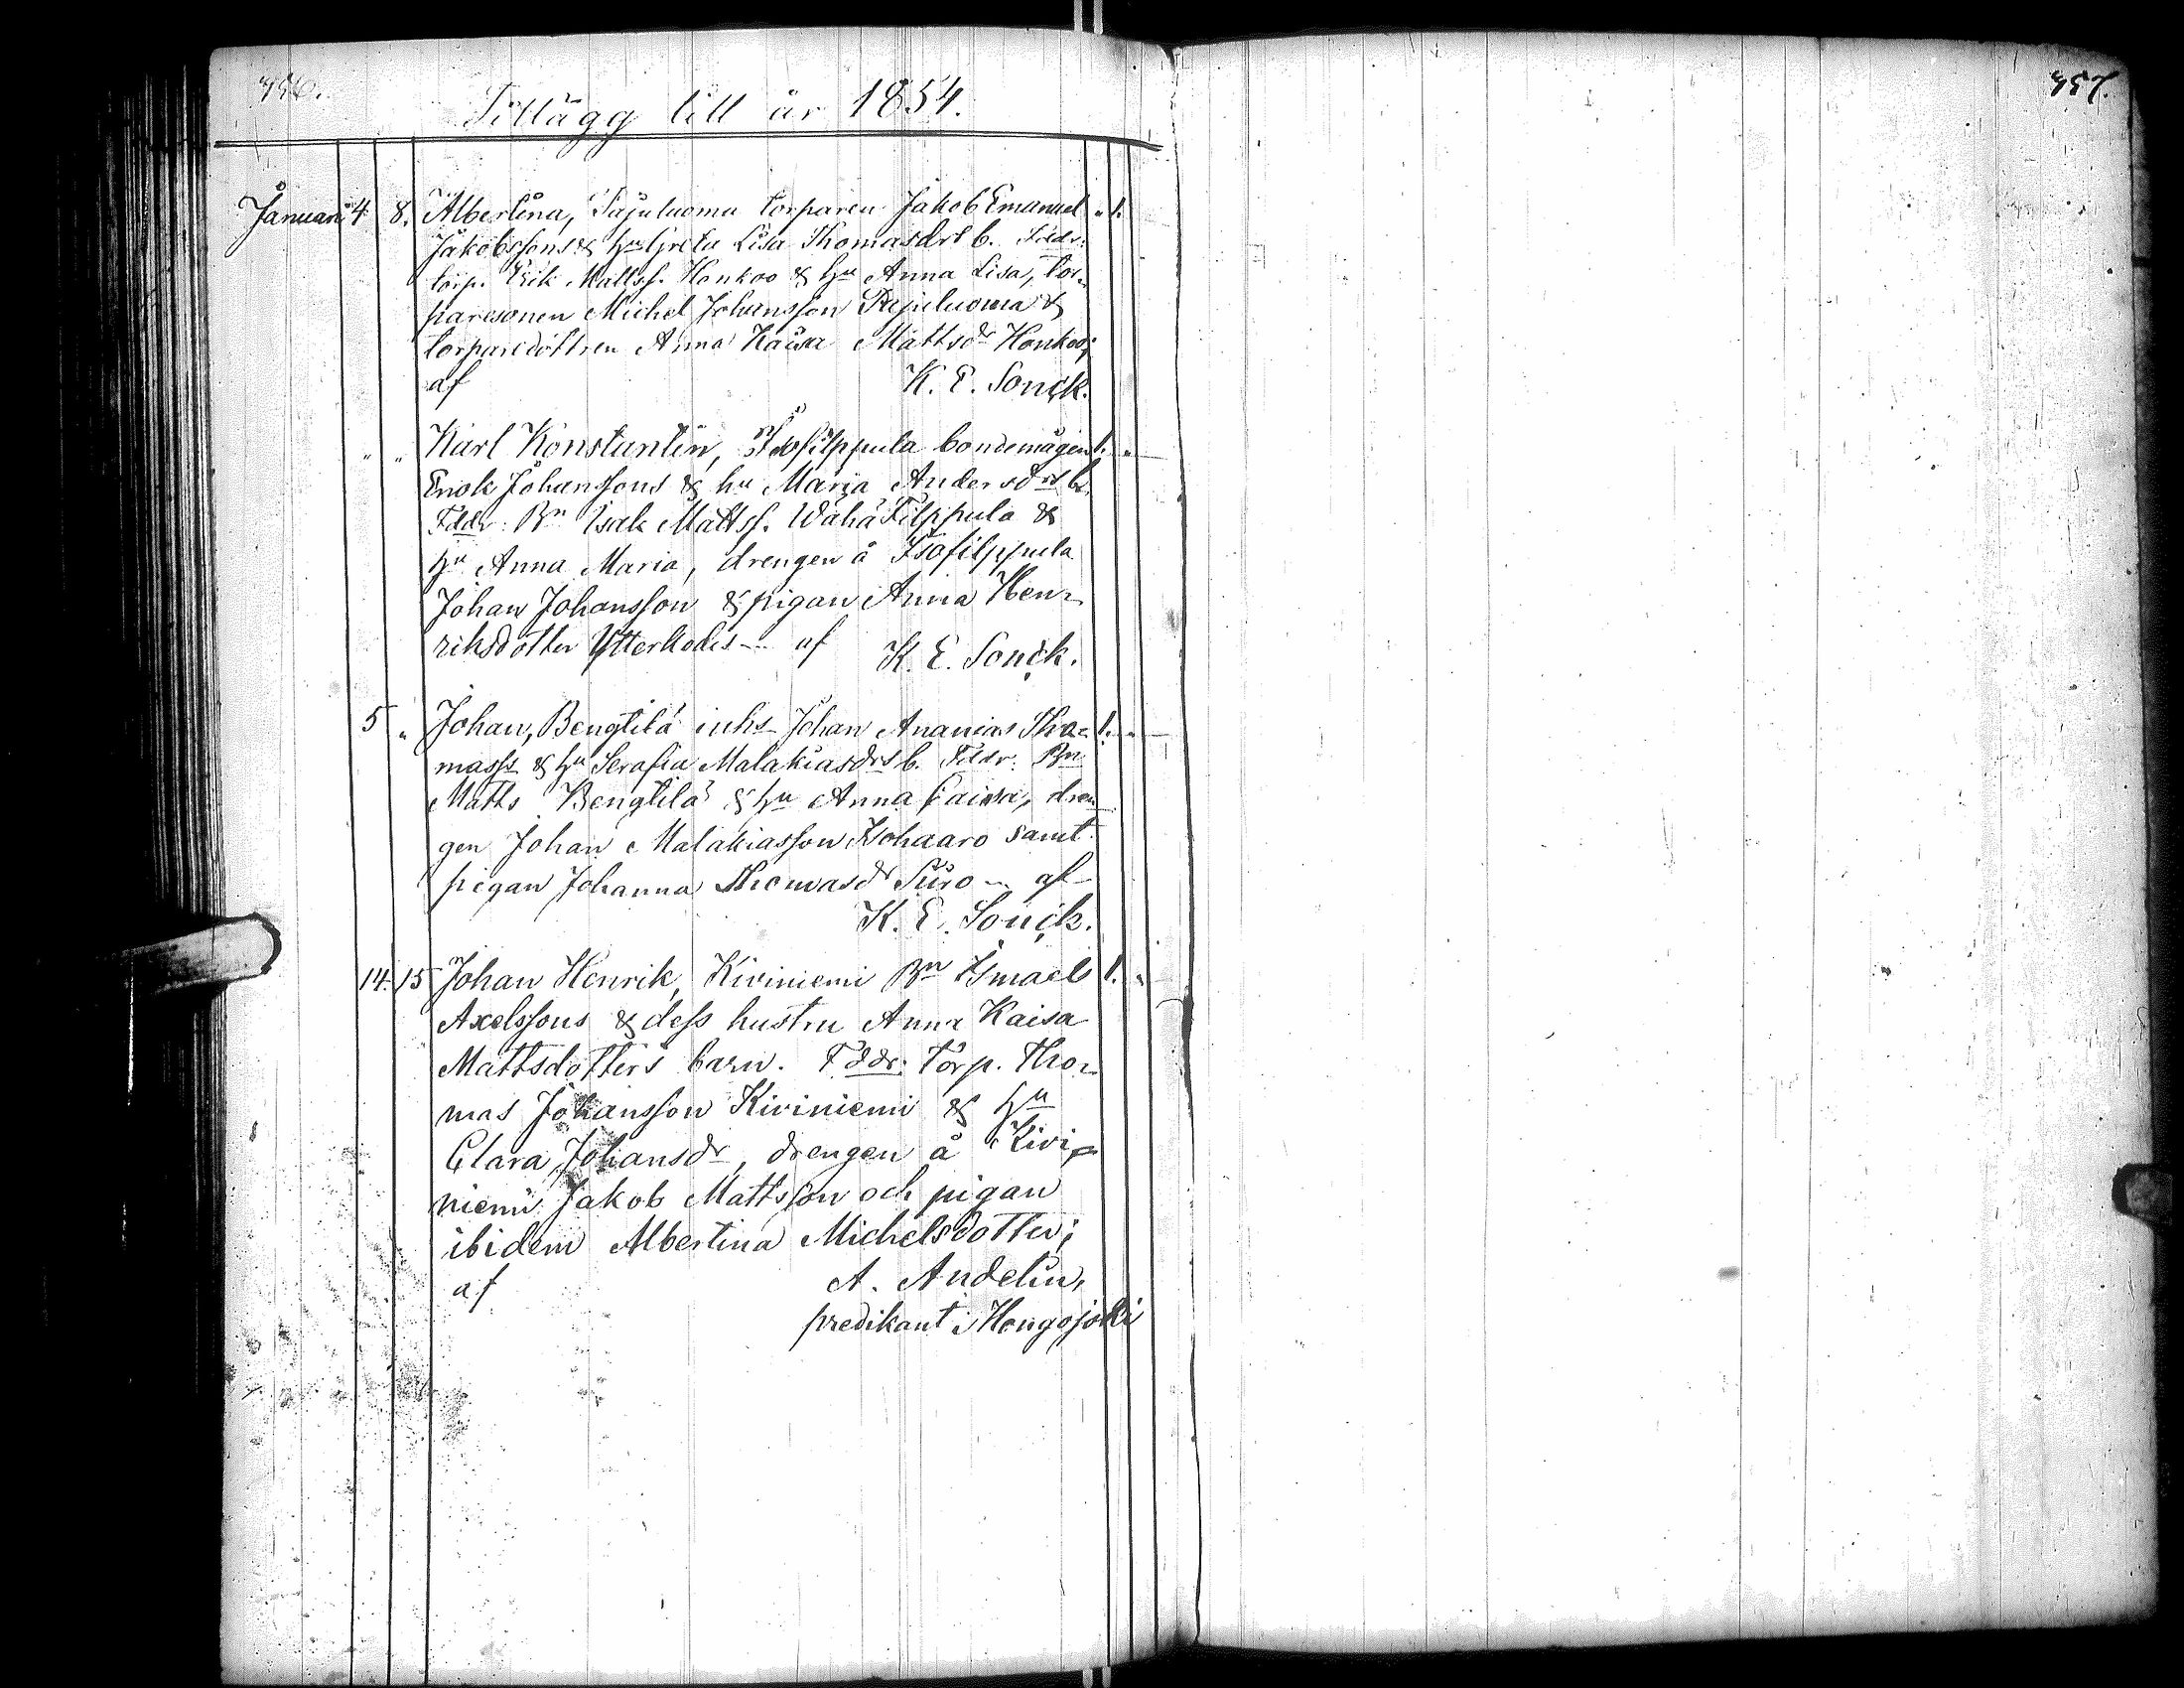 456.
457.
Tillägg till år 1854.
Januari 4 8. Albertina, Pajuluoma torparen Jakob Emanuel " 1.
Jakobssons & hu Greta Lisa Thomasdrs b. Fddr:
torp. Erik Mattss. Honkoo & hu Anna Lisa, tor-
paresonen Michel Johansson Pajuluoma &
torparedottren Anna Kaisa Mattsdr Honkoo;
af K. E. Sonck.
" " Karl Konstantin, Isofilppula bondemågen 1. "
Enok Johanssons & hu Maria Andersdrs b.
Fddr: Bn Isak Mattss. Wähä Filppula &
hu Anna Maria, drengen å Isofilppula
Johan Johansson & pigan Anna Hen-
riksdotter Ytterkodis - af K. E. Sonck.
5 " Johan, Bengtilä inhs Johan Ananias Tho- 1. "
masss & hu Serafia Malakiasdrs b. Fddr: Bn
Matts Bengtilä & hu Anna Caisa, dren-
gen Johan Malakiasson Kohaaro samt
pigan Johanna Thomasdr Siiro - af
K. E. Sonck.
14. 15 Johan Henrik, Kiviniemi Bn Ismaels 1. "
Axelssons & dess hustru Anna Kaisa
Mattsdotters barn. Fddr: torp. Tho-
mas Johansson Kiviniemi & hu
Clara Johansdr, drengen å Kivi-
niemi Jakob Mattsson och pigan
ibidem Albertina Michelsdotter;
af A. Andelin,
predikant i Hongojoki